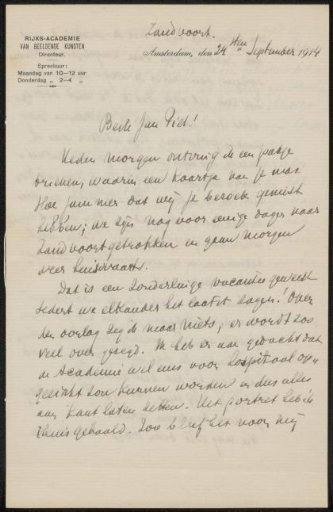 RIJKS-ACADEMIE
VAN BEELDENDE KUNSTEN
Directeur.
Spreekuur:
Maandag van 10—12 uur
Donderdag „ 2—4 „
Zandvoort.
Amsterdam, den 24sten September 1914
Beste Jan Piet!
Heden morgen ontving ik een pakje
brieven, waarin een kaartje van je was.
Hoe jammer dat wij je bezoek gemist
hebben; we zijn nog voor eenige dagen naar
Zandvoort getrokken en gaan morgen
weer huiswaarts.
Dat is een zonderlinge vacantie geweest
sedert we elkander het laatst zagen! Over
den oorlog zeg ik maar niets; er wordt zoo
veel over gezegd. Ik heb er aan gedacht dat
de Academie wel eens voor hospitaal
zou kunnen worden en dus alles
aan kant laten zetten. Het portret heb ik
thuis gehaald. Zoo bleef het voor mij